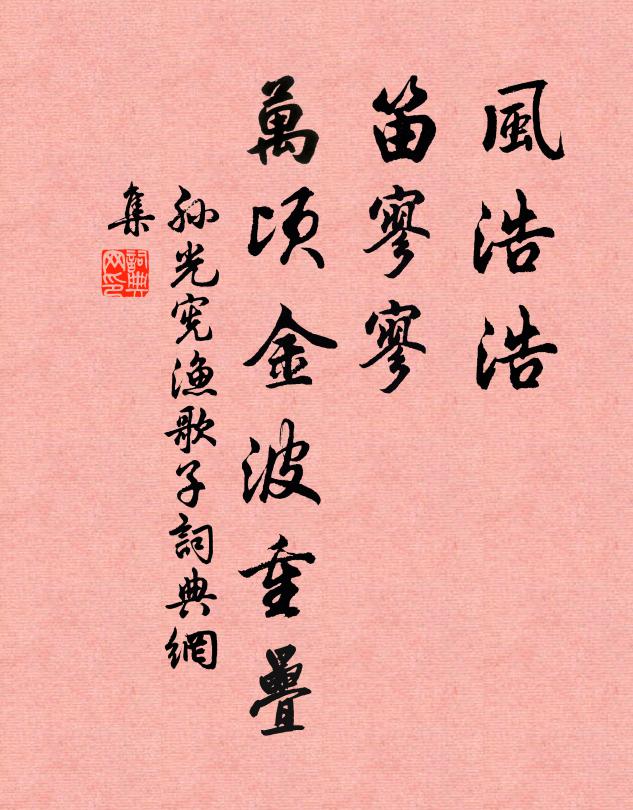 風浩浩
笛寥寥
萬頃金波重疊
孫光憲漁歌子詞典網
集
詞典網印